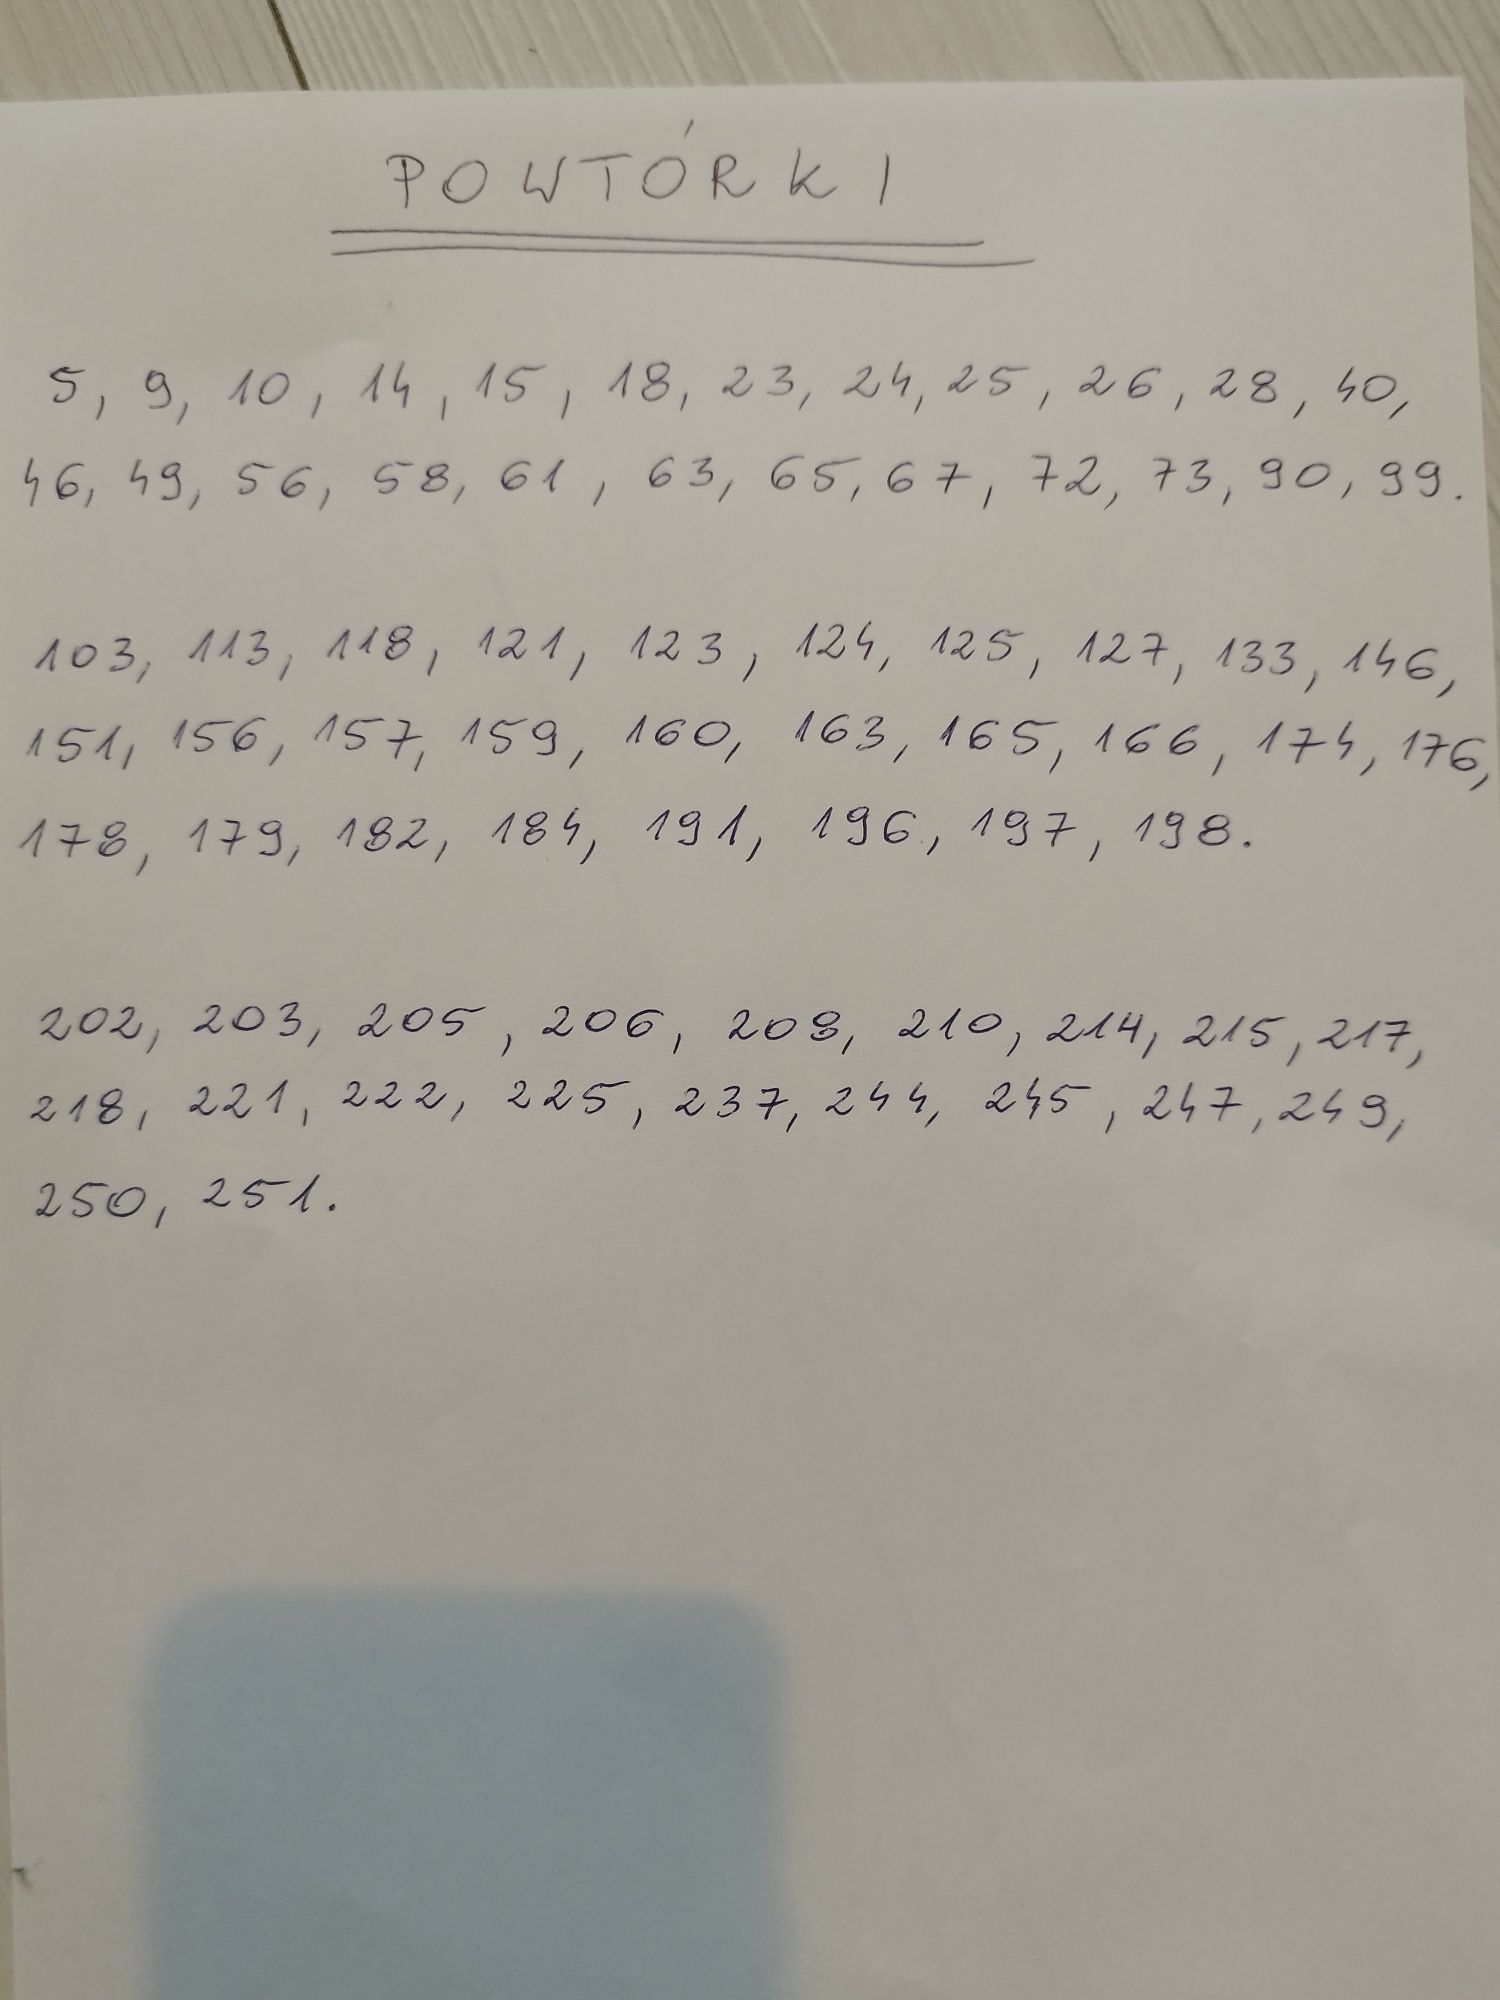 POWTÓRKI
5, 9, 10, 14, 15, 18, 23, 24, 25, 26, 28, 40,
46, 49, 56, 58, 61, 63, 65, 67, 72, 73, 90, 99.
103, 113, 118, 121, 123, 124, 125, 127, 133, 146,
151, 156, 157, 159, 160, 163, 165, 166, 174, 176,
178, 179, 182, 184, 191, 196, 197, 198.
202, 203, 205, 206, 208, 210, 214, 215, 217,
218, 221, 222, 225, 237, 244, 245, 247, 249,
250, 251.